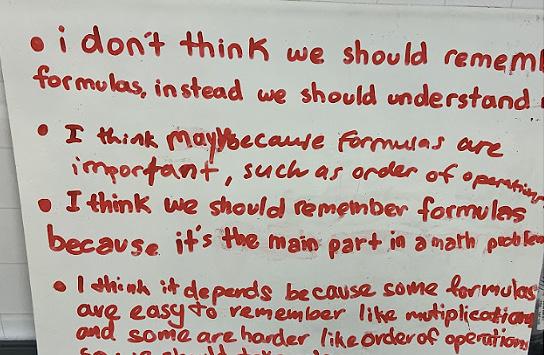 • i don't think we should rememb
formulas, instead we should understand
• I think maybe because formulas are
important, such as order of operation
• I think we should remember formulas
because it's the main part in a math problem
• I think it depends because some formulas
are easy to remember like mutiplication
and some are harder like order of operations